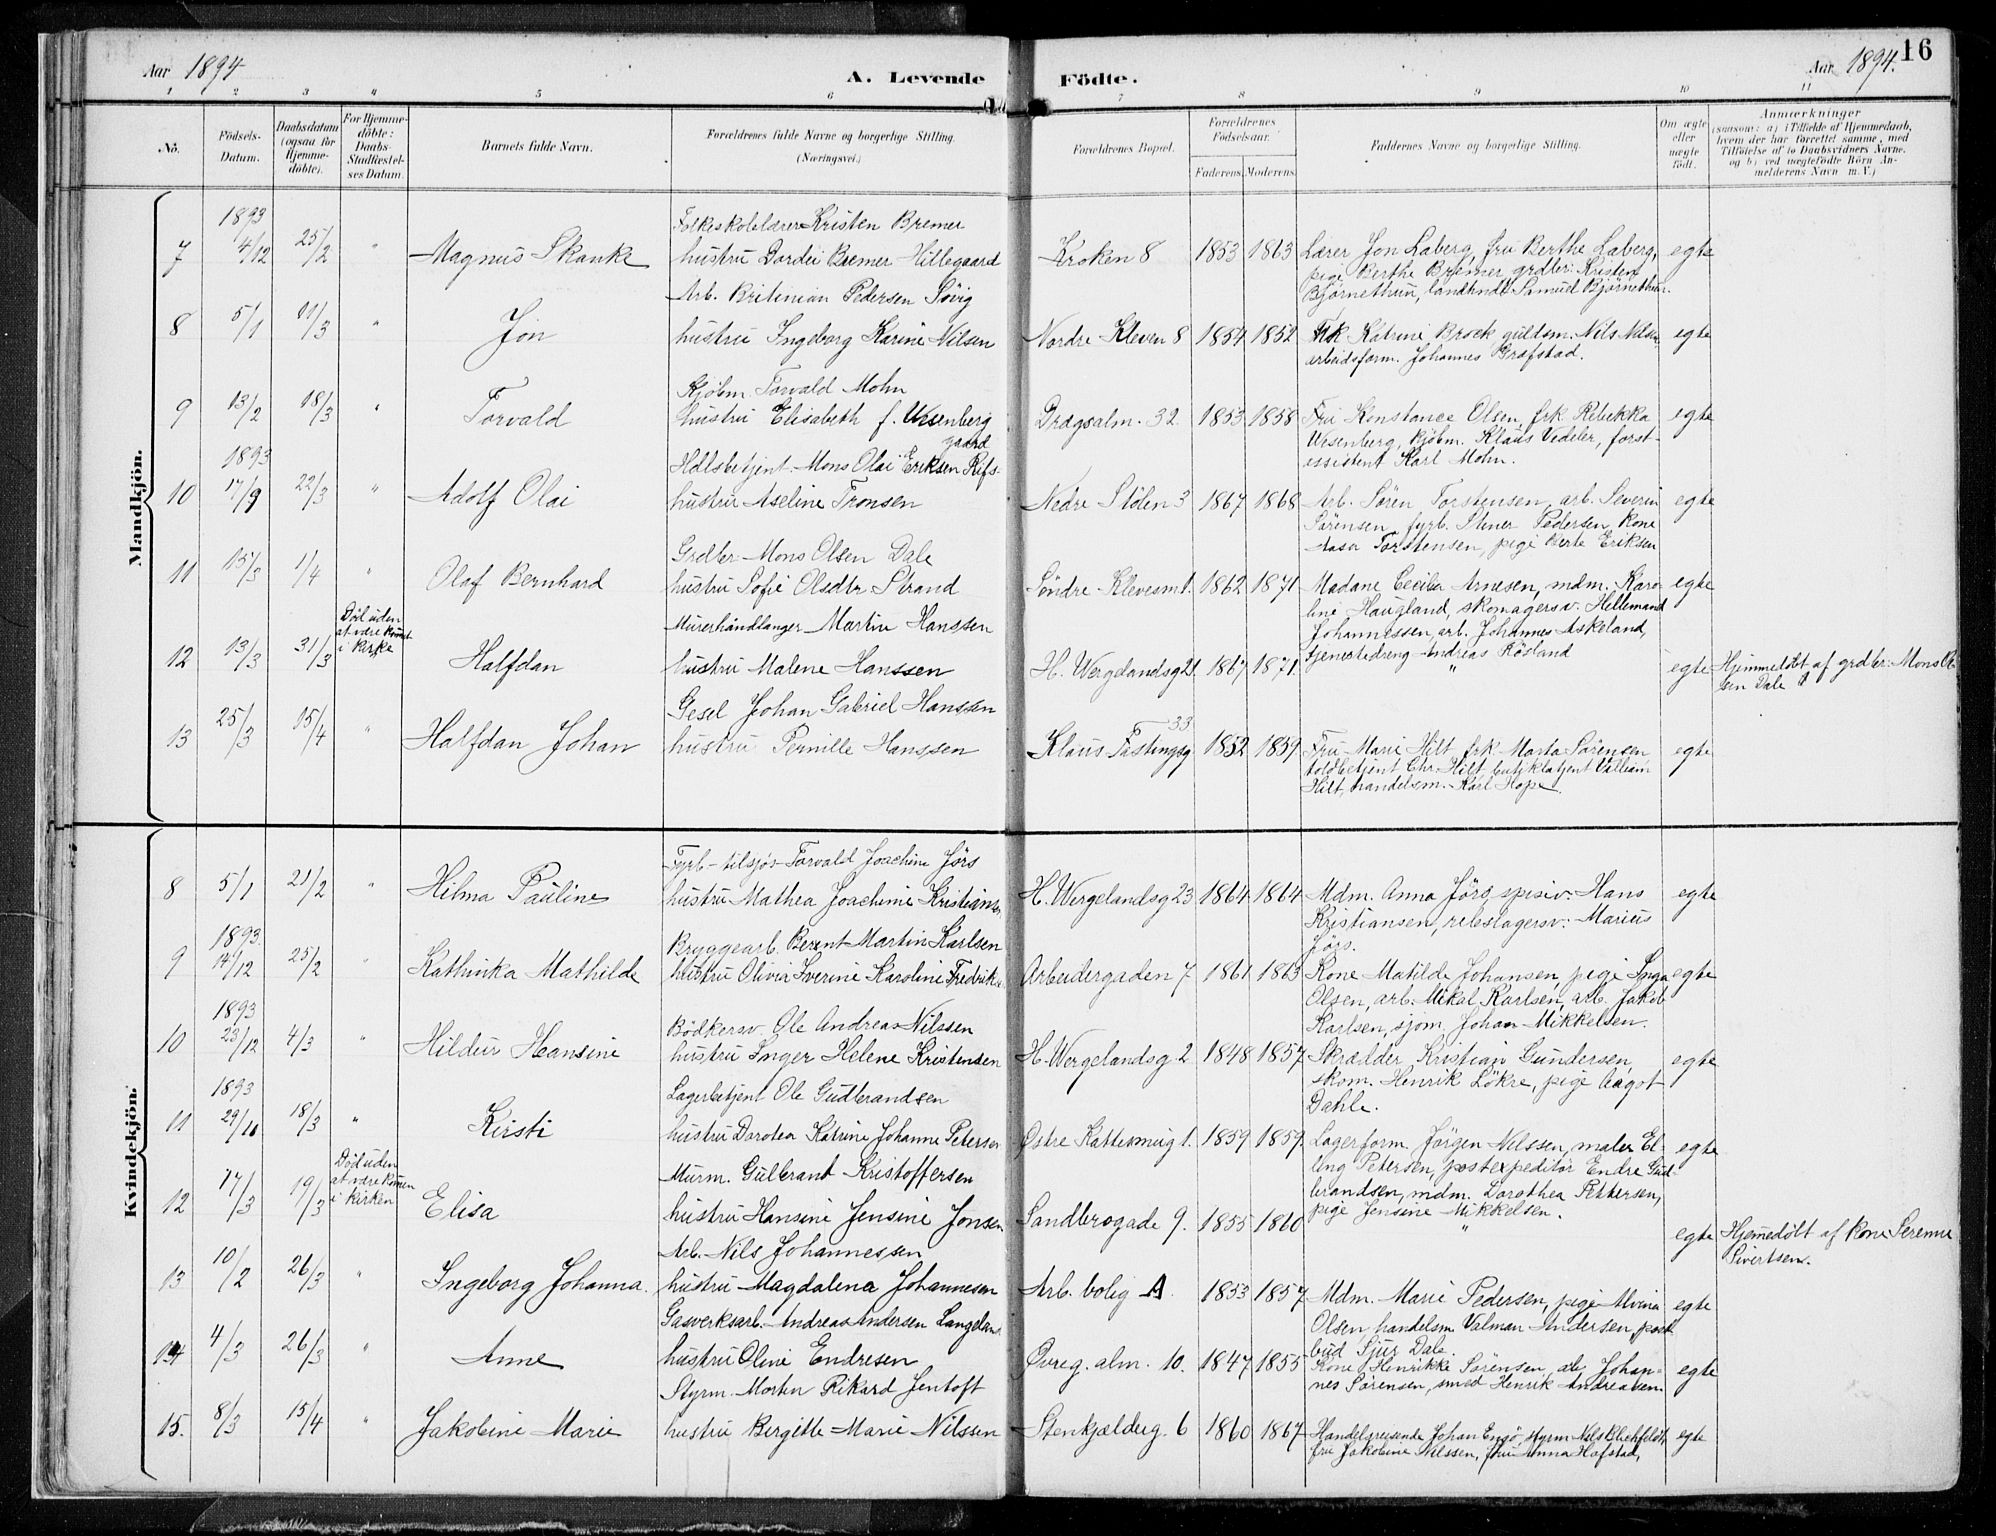 16
Aar 1894
A. Levende
Födte.
Aar 1894.
1 2 3 4 5 6 7 8 9 10 11
No.
Födsels-
Datum.
Daabsdatum
(ogsaa for
Hjemme-
döbte).
For Hjemme-
döbte:
Daabs-
Stadfæstel-
ses Datum.
Barnets fulde Navn.
Forældrenes fulde Navne og borgerlige Stilling.
(Næringsvei.)
Forældrenes Bopæl.
Forældrenes
Födselsaar.
Faderens. Moderens.
Faddernes Navne og borgerlige Stilling.
Om ægte
eller
uægte
født.
Anmærkninger
(saasom: a) i Tilfælde af Hjemmedaab,
hvem der har forrettet samme, med
Tilföielse af to Daabsvidners Navne,
og b) ved uægtefödte Börn An-
melderens Navn m. V.)
Mandkjön.
1893
7 4/12 25/2 " Magnus Skanke
Folkeskolelærer Kristen Bremer
hustru Dordei Bremer Hillegaard
Kroken 8 1853 1863
Lærer Jon Laberg, fru Berthe Laberg,
pige Berthe Bremer grdbr. Kristen
Björnethun, landhndl. Samuel Björnethun.
egte
8 5/1 11/3 " Jon
Arb. Britinian Pedersen Sövig
hustru Ingeborg Karine Nilsen
Nordre Kleven 8 1854 1852
Frk Katrine Brock guldsm. Nils Nilsen
arbeidsform. Johannes Grafstad.
egte
9 13/2 18/3 " Torvald
Kjöbm. Torvald Mohn
hustru Elisabeth f. Wesenberg
Dragsalm. 32. 1853 1858
Fru Konstance Olsen, frk. Rebekka
Wesenberg, kjöbm. Klaus Vedeler, forst-
assistent Karl Mohn.
egte
1893
10 17/9 22/3 " Adolf Olai
gaard
Hdlsbetjent Mons Olai Eriksen Rifs-
hustru Aseline Tronsen
Nedre Stölen 3 1867 1868
Arb. Sören Torstensen, arb. Severin
Sörensen, fyrb. Stener Pedersen, kone
Aasa Torstensen, pige Berte Eriksen
egte
11 15/3 1/4 " Olaf Bernhard
Grdbr. Mons Olsen Dale
hustru Sofie Olsdtr Strand
Söndre Klevesm 1. 1862 1871
Madane Cecilia Arnesen, mdm. Karo-
line Haugland, skomagersv. Hellemand
Johannessen, arb. Johannes Askeland,
tjenestedreng Andreas Rösland
egte
12 13/3 31/3 Död uden
at være kommet
i kirke
Halfdan
Murerhåndlanger Martin Hanssen
hustru Malene Hanssen
H. Wergelandsg 21. 1867 1871
"
egte
Hjemmedöbt af grdbr. Mons Ol-
sen Dale
13 25/3 15/4 " Halfdan Johan
Gesel Johan Gabriel Hanssen
hustru Pernille Hanssen
33
Klaus Fastingsg 1852 1859
Fru Marie Hilt, frk. Marta Sörensen
toldbetjent Chr. Hilt, butikbetjent Valliam
Hilt, handelsm. Karl Hope.
egte
Kvindekjön.
8 5/1 21/2 " Hilma Pauline
Fyrb. tilsjös Torvald Joachim Jörs
hustru Mathea Joachimie Kristiansen
H. Wergelandsg 23 1864 1864
Mdm. Anna Jörs, spisiv. Hans
Kristiansen, rebslagersv. Marius
Jörs.
egte
1893.
9 14/12 25/2 " Kathinka Mathilde
Bryggearb. Berent Martin Karlsen
hustru Olivia Sverine Karoline Fredrikse
Arbeidergaden 7 1861 1863
Kone Matilde Johansen, pige Inga
Olsen, arb. Mikal Karlsen, arb. Jakob
Karlsen, sjöm. Johan Mikkelsen.
egte
1893
10 23/12 4/3 " Hildur Hansine
Bödkersv. Ole Andreas Nilssen
hustru Inger Helene Kristensen
H. Wergelandsg 2 1848 1857
Skrædder Kristian Gundersen,
skom. Henrik Lökre, pige Aagot
Dahle.
egte
1893
11 29/10 18/3 " Kirsti
Lagerbetjent Ole Gudbrandsen
hustru Dorotea Katrine Johanne Petersen
Östre Kattesmug 1. 1859 1859
Lagerform. Jörgen Nilssen, maler El-
ling Petersen, postexpeditör Endre Gud-
brandsen, mdm. Dorothea Pettersen,
pige Jensine Mikkelsen.
egte
12 17/3 19/3 Död uden
at være kommen
i kirken
Elisa
Murm. Gulbrant Kristoffersen
hustru Hansine Jensine Jonsen
Sandbrogade 9. 1855 1860
"
egte
Hjemedöbt af kone Serenne
Sivertsen.
13 10/2 26/3 " Ingeborg Johanna.
Arb. Nils Johannessen
hustru Magdalena Johannesen
Arb. bolig A. 1853 1857
Mdm. Marie Pedersen, pige Alvina
Olsen, handelsm Valman Andersen, post-
bud Sjur Dale.
egte
14 4/3 26/3 " Anne
Gasverksarb. Andreas Andersen Langeland
hustru Oline Endresen
Övreg. alm. 10. 1847 1855
Kone Henrikke Sörensen, arb. Johan-
nes Sörensen, smed Henrik Andreasen.
egte
15. 8/3 15/4 " Jakobine Marie
Styrm. Morten Rikard Jentoft
hustru Bergitte Marie Nilssen
Stenkjælderg. 6 1860 1867
Handelsreisende Johan Engö, styrm Nils Blichfeldt,
fru Jakobine Nilssen, fru Anna Hafstad,
egte